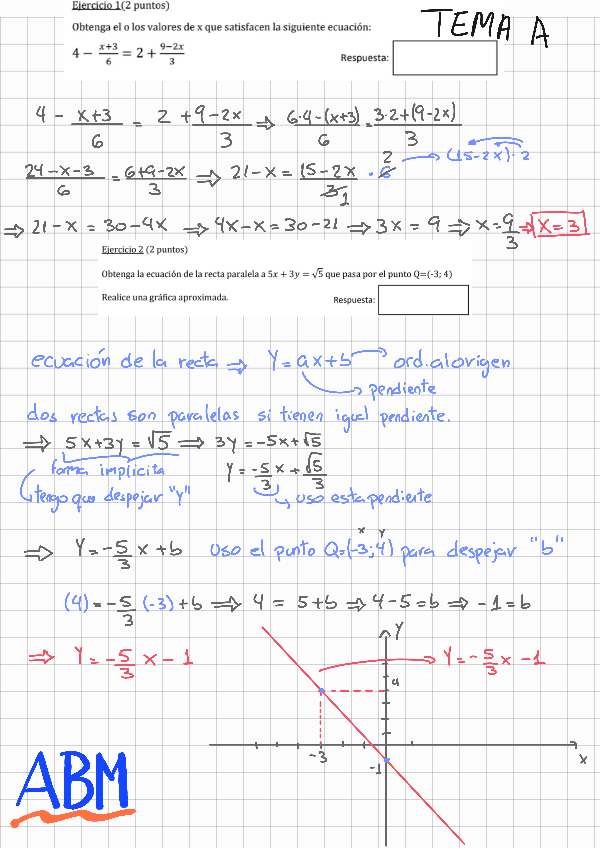 Ejercicio 1(2 puntos)
TEMA A
Obtenga el o los valores de x que satisfacen la siguiente ecuación:
4 − (x+3)/6 = 2 + (9−2x)/3
Respuesta:
4 − (x+3)/6 = 2 + (9−2x)/3 ⇒ (6·4−(x+3))/6 = (3·2+(9−2x))/3
(24−x−3)/6 = (6+9−2x)/3 ⇒ 21−x = (15−2x)/3 1 · 6 2 → (15−2x)·2
⇒ 21−x = 30−4x ⇒ 4x−x = 30−21 ⇒ 3x = 9 ⇒ x = 9/3 ⇒ x = 3
Ejercicio 2 (2 puntos)
Obtenga la ecuación de la recta paralela a 5x + 3y = √5 que pasa por el punto Q=(-3; 4)
Realice una gráfica aproximada.
Respuesta:
ecuación de la recta ⇒ Y = ax+b → ord. al origen
→ pendiente
dos rectas son paralelas si tienen igual pendiente.
⇒ 5x+3y = √5 ⇒ 3y = −5x+√5
forma implicita
Y = −5/3 x + √5/3
tengo que despejar "y"
→ uso esta pendiente
x y
⇒ Y = −5/3 x + b uso el punto Q=(−3; 4) para despejar "b"
(4) = −5/3 (−3) + b ⇒ 4 = 5+b ⇒ 4−5 = b ⇒ −1 = b
⇒ Y = −5/3 x − 1
Y
→ Y = −5/3 x − 1
4
−3
−1
x
ABM